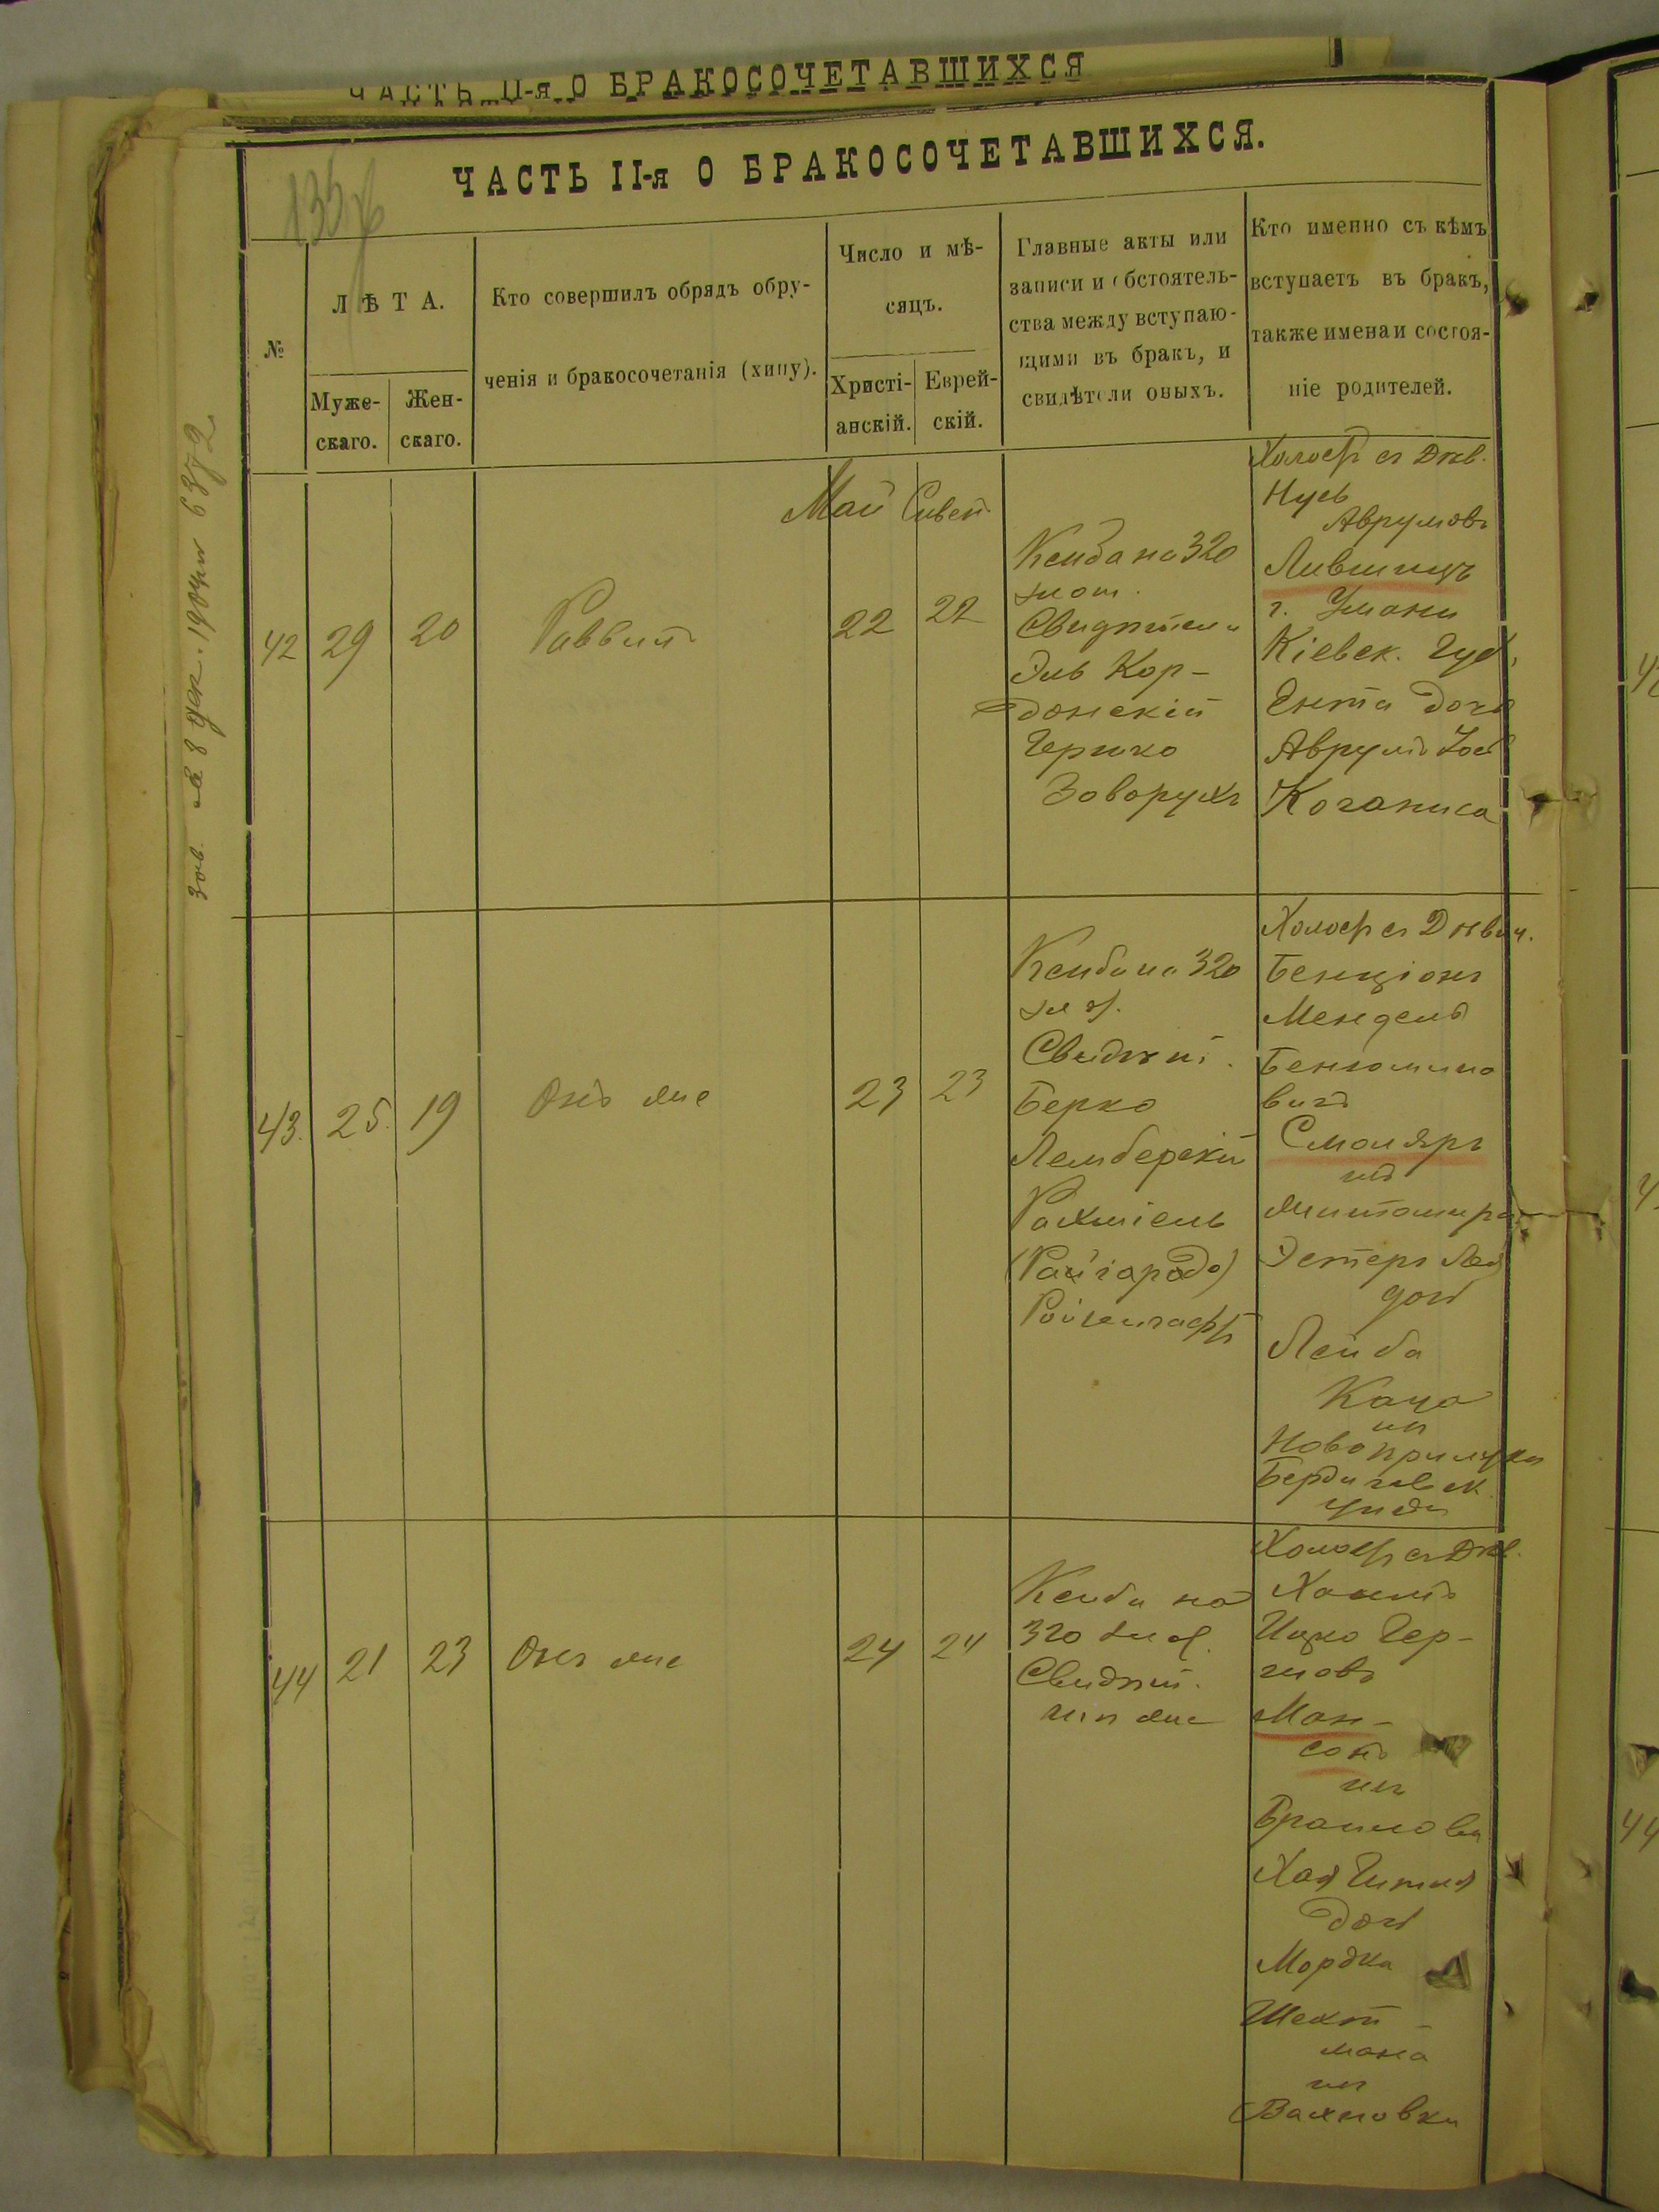 ЧАСТЬ II-я О БРАКОСОЧЕТАВШИХСЯ
ЧАСТЬ II-я О БРАКОСОЧЕТАВШИХСЯ.
№
ЛѢТА.
Муже-
скаго.
Жен-
скаго.
Кто совершилъ обрядъ обру-
ченія и бракосочетанія (хипу).
Число и мѣ-
сяцъ.
Христі-
анскій.
Еврей-
скій.
Главные акты или
записи и обстоятель-
ства между вступаю-
щими въ бракъ, и
свидѣтели оныхъ.
Кто именно съ кѣмъ
вступаетъ въ бракъ,
также имена и состоя-
ніе родителей.
Май Сивен
42
29
20
Раввинъ
22
22
Ксиба на 320
Свидѣтели
Эль Кор-
донскій
Гершко
Заворухъ
Холост съ Дѣв.
Нусь
Аврумовъ
Лившицъ
г. Умани
Кіевск. Губ.
Ента дочь
Аврумъ
Коганиса
43.
25.
19
Онъ же
23
23
Ксиба на 320
Свидѣт.
Берко
Лембергскій
Рахміель
Холост съ Дѣвич.
Бенціонъ
Мендель
Беніомино
вичъ
Смоляръ
изъ
Житомира
Эстеръ Лея
доч
Лейба
Каца
из
Новоприлуки
Бердичевск.
уѣзда
44
21
23
Онъ же
24
24
Ксиба на
320 зл.
Свидѣт.
тѣ же
Холост съ Дѣв.
Хаимъ
Ицко Гер-
шовъ
Ман-
сонъ
изъ
Браилова
Хая Гитля
доч
Мордка
Шехт-
мана
из
Вахновки